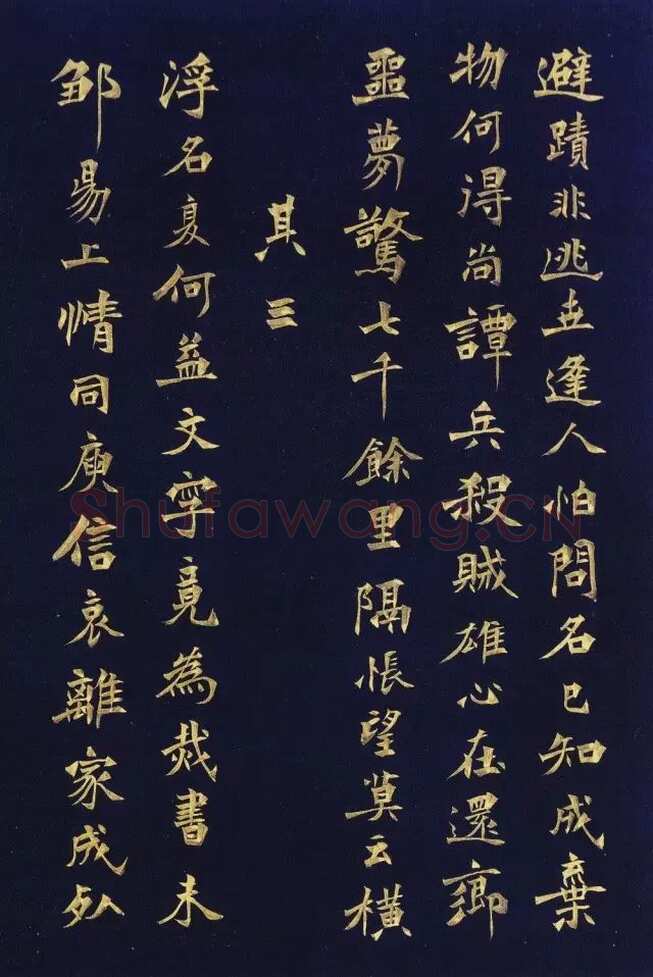 避蹟非逃世逢人怕問名已知成棄
物何得尚譚兵殺賊雄心在還鄉
噩夢驚七千餘里隔悵望莫云橫
其三
浮名复何益文字竟為烖書未
鄒昜上情同庾信哀離家成死
Shufawang.CN